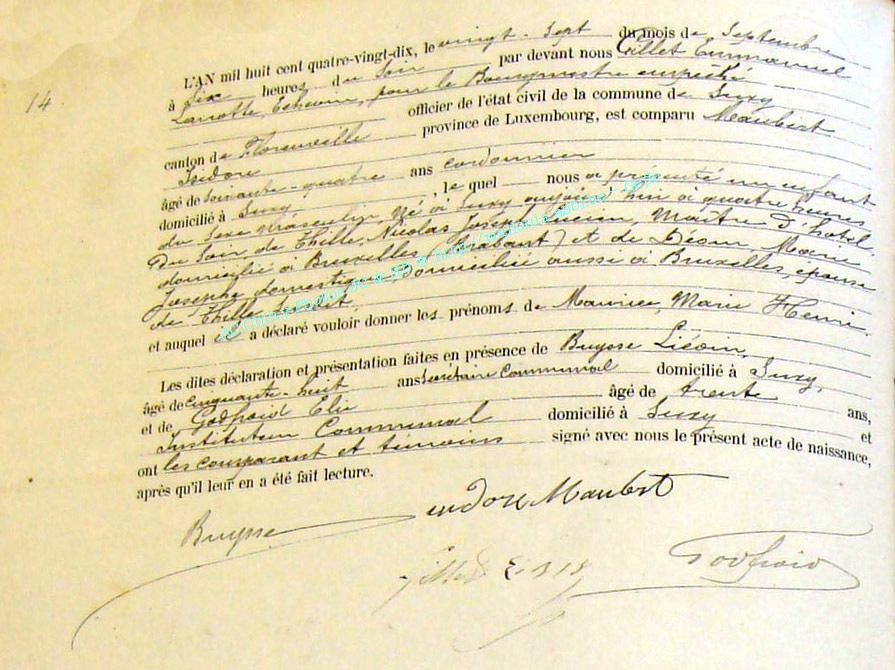 14
L'AN mil huit cent quatre-vingt-dix, le vingt-sept du mois de Septembre
à six heures du soir par devant nous Gillet Emmanuel
Lanotte, Echevin, pour le Bourgmestre empêché
officier de l'état civil de la commune de Suxy
canton de Florenville province de Luxembourg, est comparu Maubert
Isidore
âgé de soixante-quatre ans cordonnier
domicilié à Suxy, le quel nous a présenté un enfant
du sexe masculin, né à Suxy aujourd'hui à quatre heures
du soir, de Thille, Nicolas Joseph Lucien, Maître d'hotel
domicilié à Bruxelles (Brabant) et de Marie
Josephe domestique, domiciliée aussi à Bruxelles, épouse
de Thille
et auquel il a déclaré vouloir donner les prénoms de Maurice, Marie Henri.
Les dites déclaration et présentation faites en présence de Buysse
âgé de cinquante-huit ans Secrétaire Communal domicilié à Suxy,
et de Godfroid Elie âgé de trente ans,
Instituteur Communal domicilié à Suxy et
ont les comparant et témoins signé avec nous le présent acte de naissance,
après qu'il leur en a été fait lecture.
Buysse Maubert
Godfroid